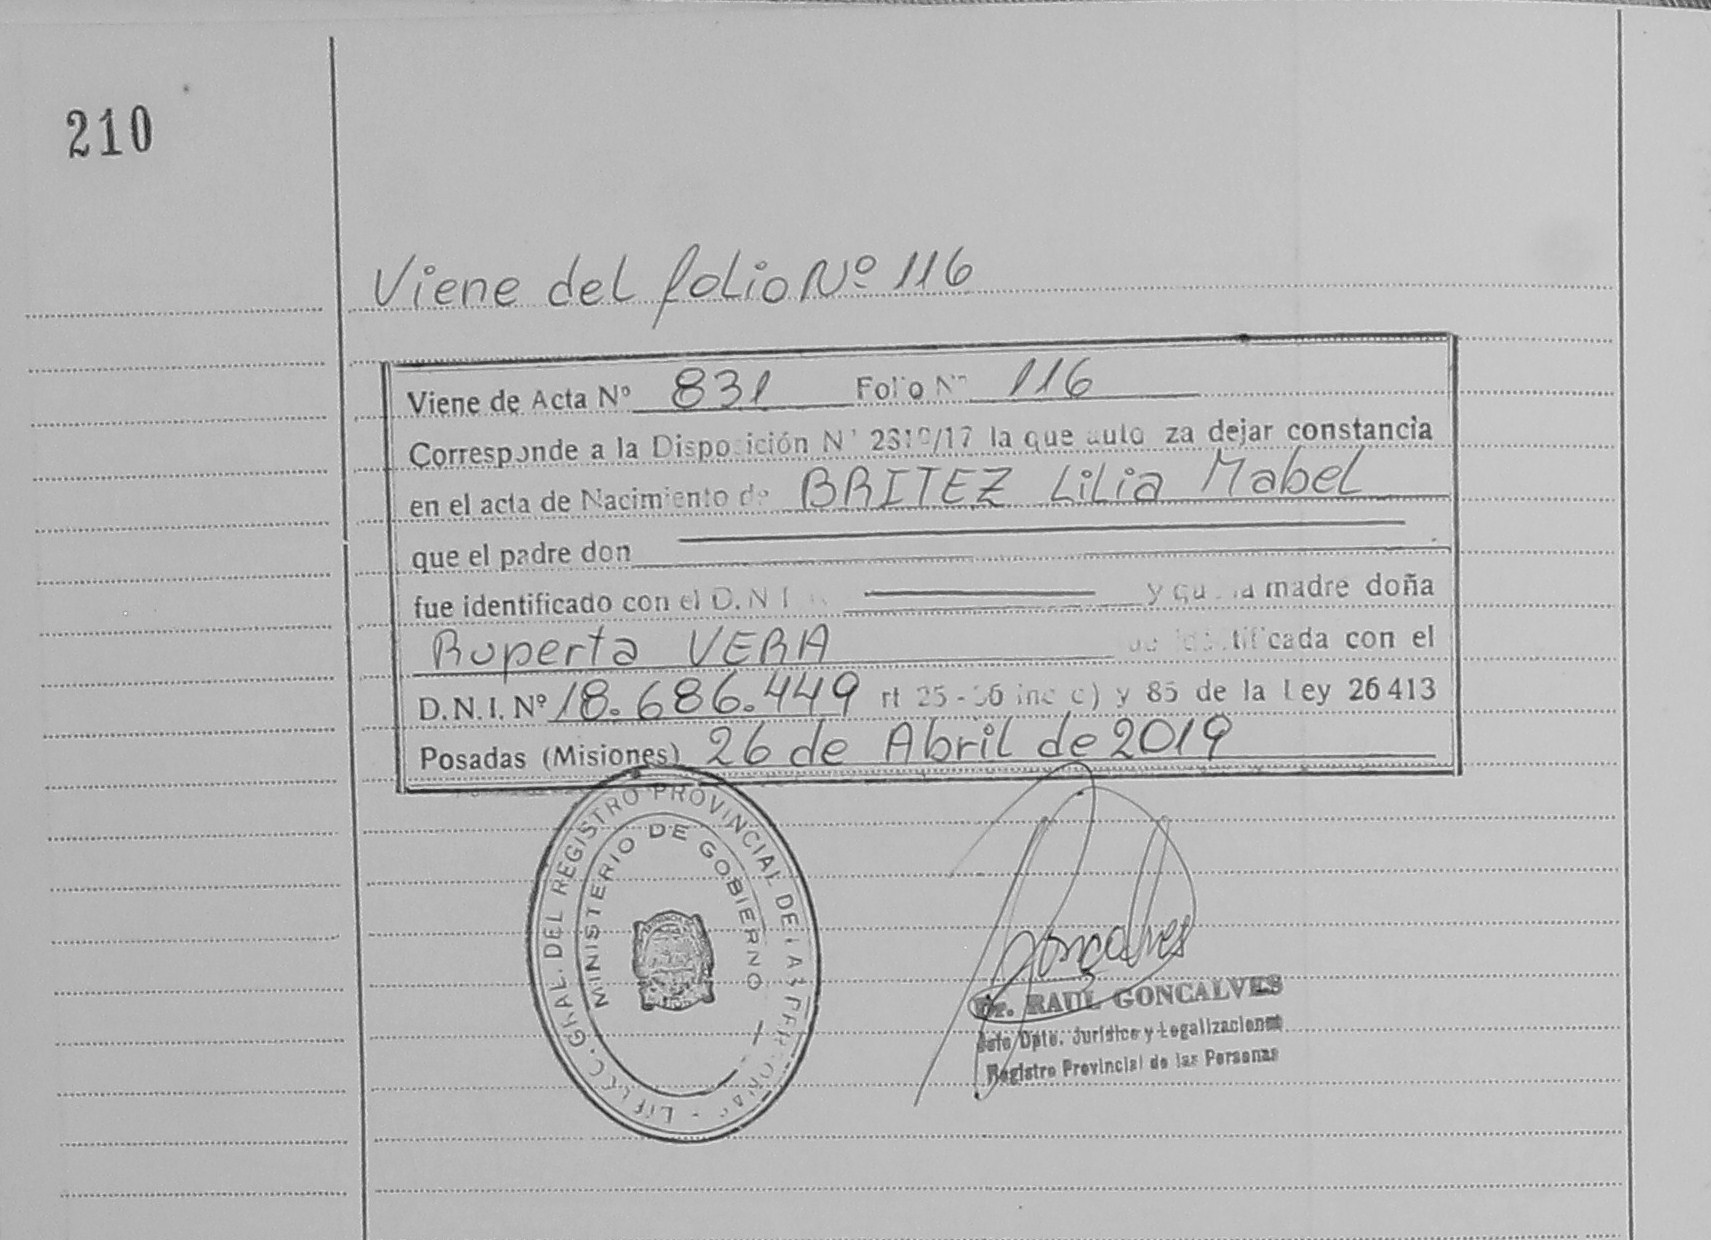 210
Viene del folio Nº 116
Viene de Acta Nº 831 Folio Nº 116
Corresponde a la Disposición Nº /17 la que autoriza dejar constancia
en el acta de Nacimiento de BRITEZ Lilia Mabel
que el padre don
fue identificado con el D.N.I. y que la madre doña
Ruperta VERA identificada con el
D.N.I. Nº 18.686.449 rt 25 - 36 inc c) y 85 de la Ley 26413
Posadas (Misiones) 26 de Abril de 2019
GRAL. DEL REGISTRO PROVINCIAL DE LAS PERSONAS
MINISTERIO DE GOBIERNO
Goncalves
Dr. RAUL GONCALVES
Jefe Dpto. Jurídico y Legalizaciones
Registro Provincial de las Personas